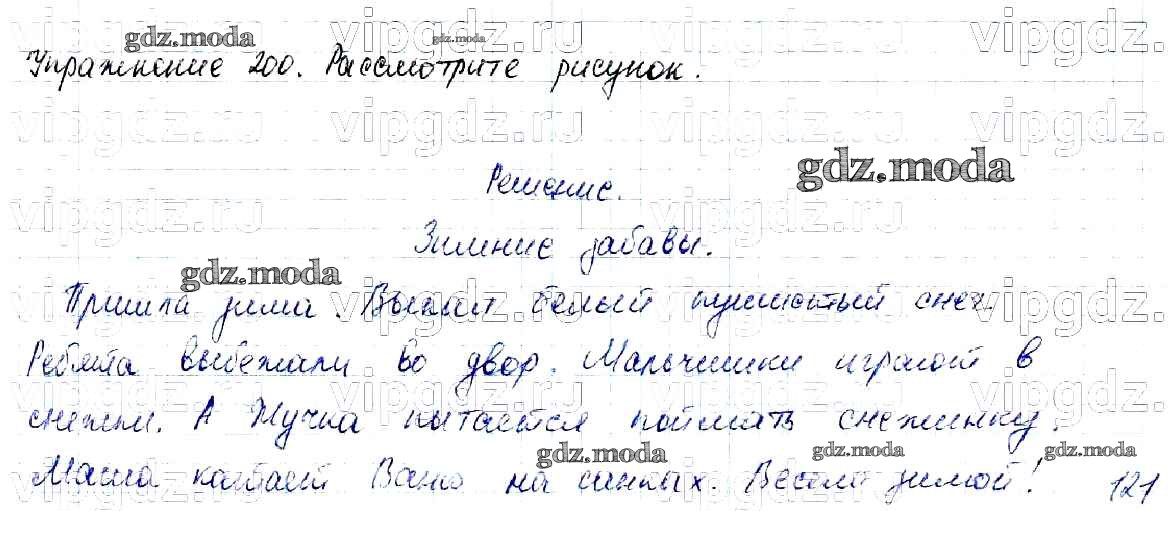 Упражнение 200. Рассмотрите рисунок.
Решение.
Зимние забавы.
Пришла зима. Выпал белый пушистый снег.
Ребята выбежали во двор. Мальчишки играют в
снежки. А Жучка пытается поймать снежинку.
Маша катает Ваню на санках. Весело зимой! 121
gdz.moda
gdz.moda
gdz.moda
gdz.moda
gdz.moda
gdz.moda
gdz.moda
vipgdz.ru vipgdz.ru vipgdz.ru vipgdz.ru
vipgdz.ru vipgdz.ru vipgdz.ru vipgdz.ru
vipgdz.ru vipgdz.ru vipgdz.ru vipgdz.ru
vipgdz.ru vipgdz.ru vipgdz.ru vipgdz.ru
vipgdz.ru vipgdz.ru vipgdz.ru vipgdz.ru